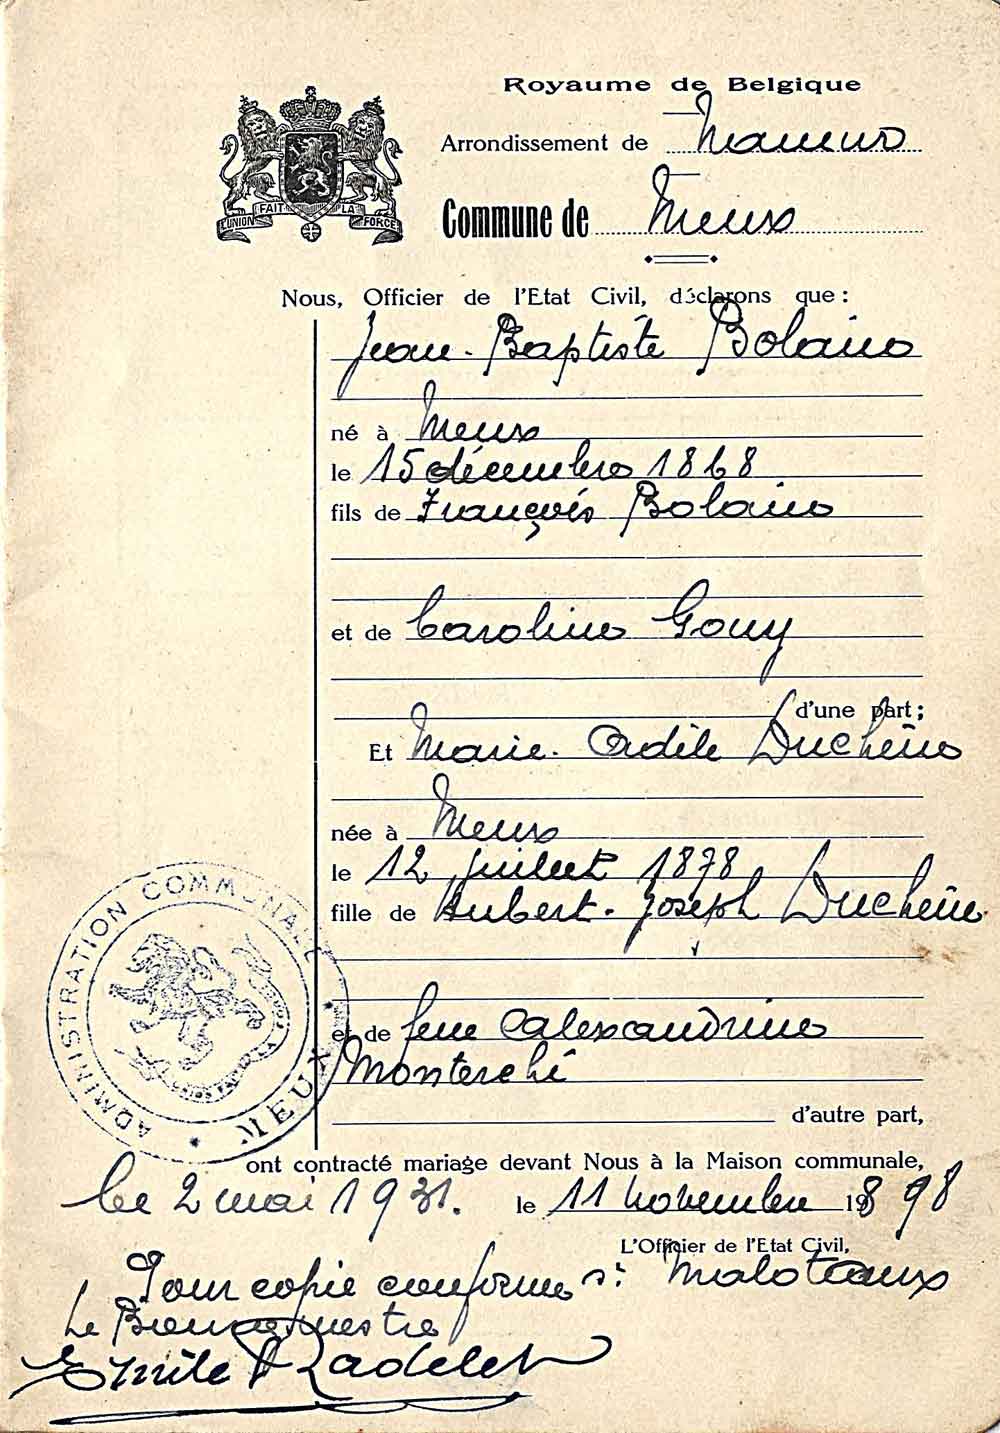 Royaume de Belgique
Arrondissement de Namur
Commune de Meux
L'UNION FAIT LA FORCE
Nous, Officier de l'Etat Civil, déclarons que :
Jean-Baptiste Bolain
né à Meux
le 15 décembre 1868
fils de François Bolain
et de Caroline Gouy
d'une part;
Et Marie-Adèle Duchêne
née à Meux
le 12 juillet 1878
fille de Hubert-Joseph Duchêne
et de feue Alexandrine
Monterchi
d'autre part,
ADMINISTRATION COMMUNALE
MEUX
ont contracté mariage devant Nous à la Maison communale,
le 11 novembre 1898
L'Officier de l'Etat Civil,
s: Maloteaux
Le 2 mai 1931.
Pour copie conforme
Le Bourgmestre
Emile Radelet